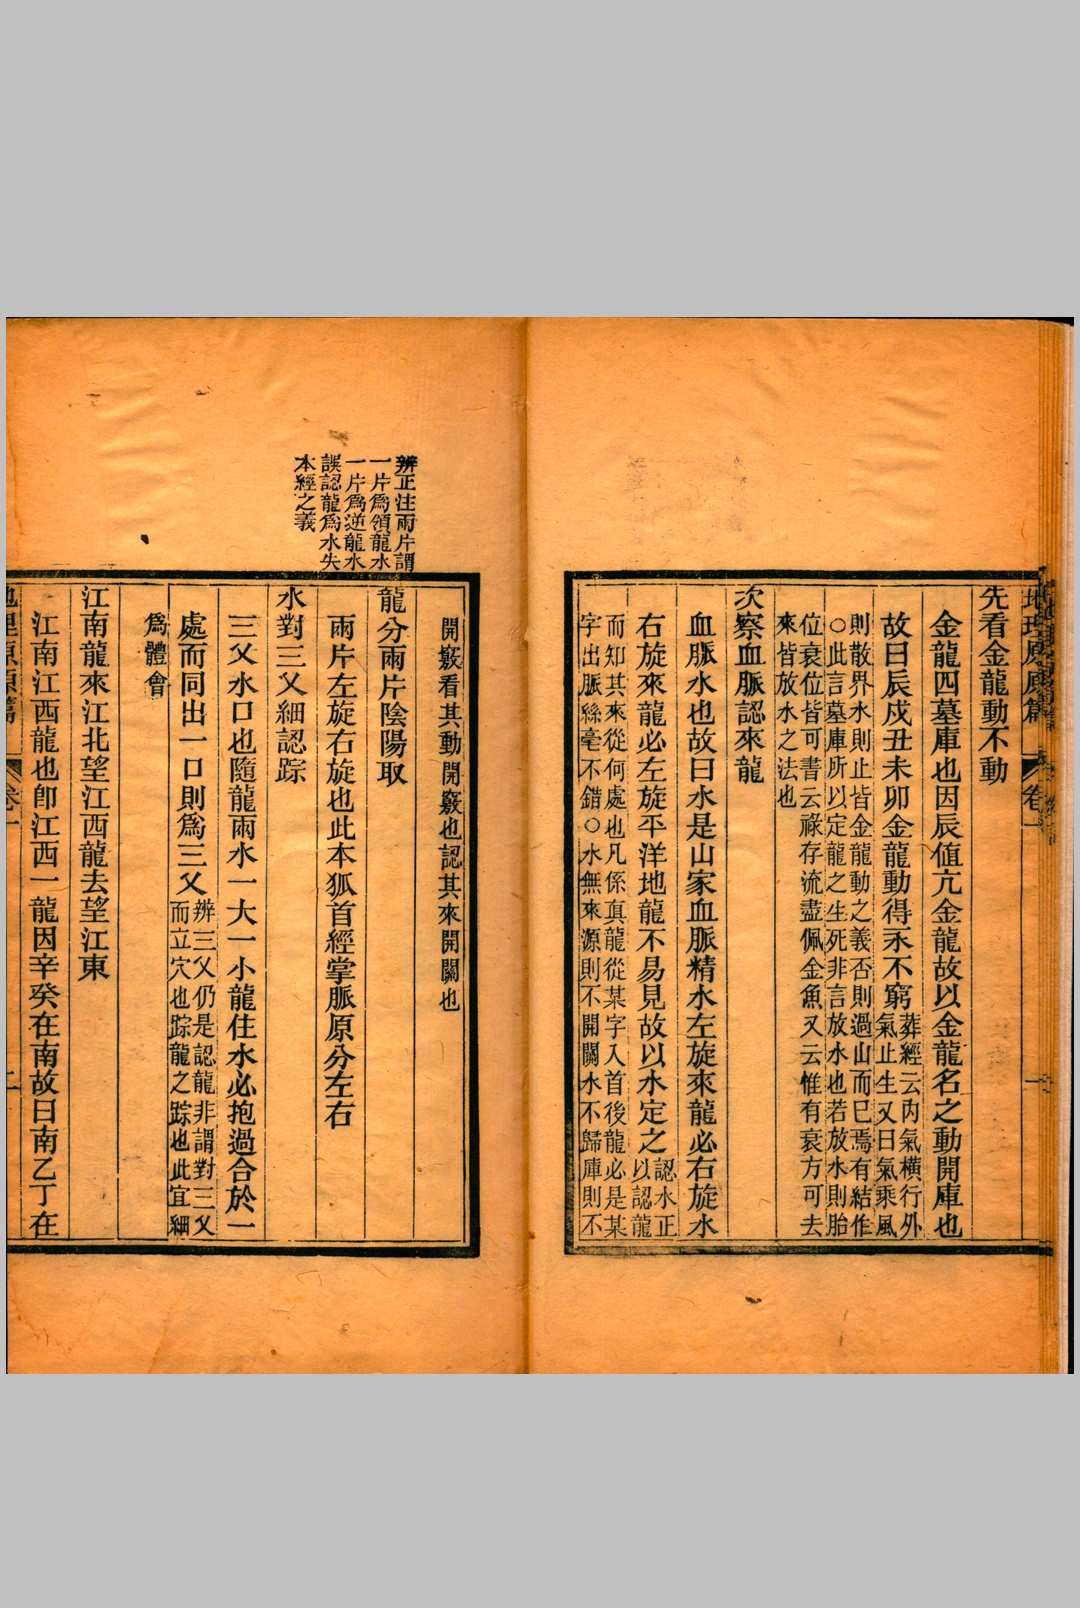 地理原原篇 卷一
先看金龍動不動
金龍四墓庫也因辰值亢金龍故以金龍名之動開庫也
故曰辰戍丑未卯金龍動得永不窮葬經云內氣橫行外
氣止生又曰氣乘風
則散界水則止皆金龍動之義否則過山而已焉有結作
○此言墓庫所以定龍之生死非言放水也若放水則胎
位衰位皆可書云祿存流盡佩金魚又云惟有衰方可去
來皆放水之法也
次察血脈認來龍
血脈水也故曰水是山家血脈精水左旋來龍必右旋水
右旋來龍必左旋平洋地龍不易見故以水定之認水正
以認龍
而知其來從何處也凡係眞龍從某字入首後龍必是某
字出脈絲毫不錯○水無來源則不開關水不歸庫則不
開竅看其動開竅也認其來開關也
辨正注兩片謂
一片爲領龍水
一片爲逆龍水
誤認龍爲水失
本經之義
龍分兩片陰陽取
兩片左旋右旋也此本狐首經掌脈原分左右
水對三叉細認踪
三叉水口也隨龍兩水一大一小龍住水必抱過合於一
處而同出一口則爲三叉辨三叉仍是認龍非謂對三叉
而立穴也踪龍之踪也此宜細
爲體會
江南龍來江北望江西龍去望江東
江南江西龍也卽江西一龍因辛癸在南故曰南乙丁在
地理原原篇 卷一 二